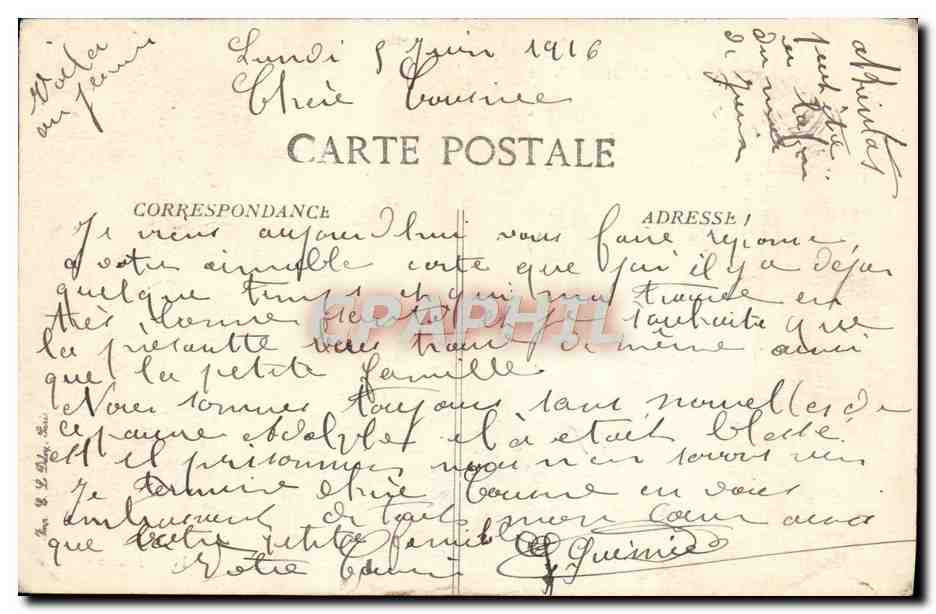 Lundi 5 Juin 1916
Chère Cousine
Voila
CARTE POSTALE
CORRESPONDANCE
ADRESSE
Je viens aujourd'hui vous faire reponse
a votre aimable carte que j'ai il y a dejas
quelque temps et qui ma trouvé en
très bonne je souhaite que
la présentte vous trouve de même ainsi
que la petite famille.
Nous sommes toujours sans nouvelles de
ce pauvre il a etait blessé
est il prisonnier nous n'en savons rien
Je termine chère Cousine en vous
embrassent de tout mon cœur ainsi
que votre petite famille
Votre Cousin
peut être
du mois
de Juin
Imp. Paris
CPAPHIL